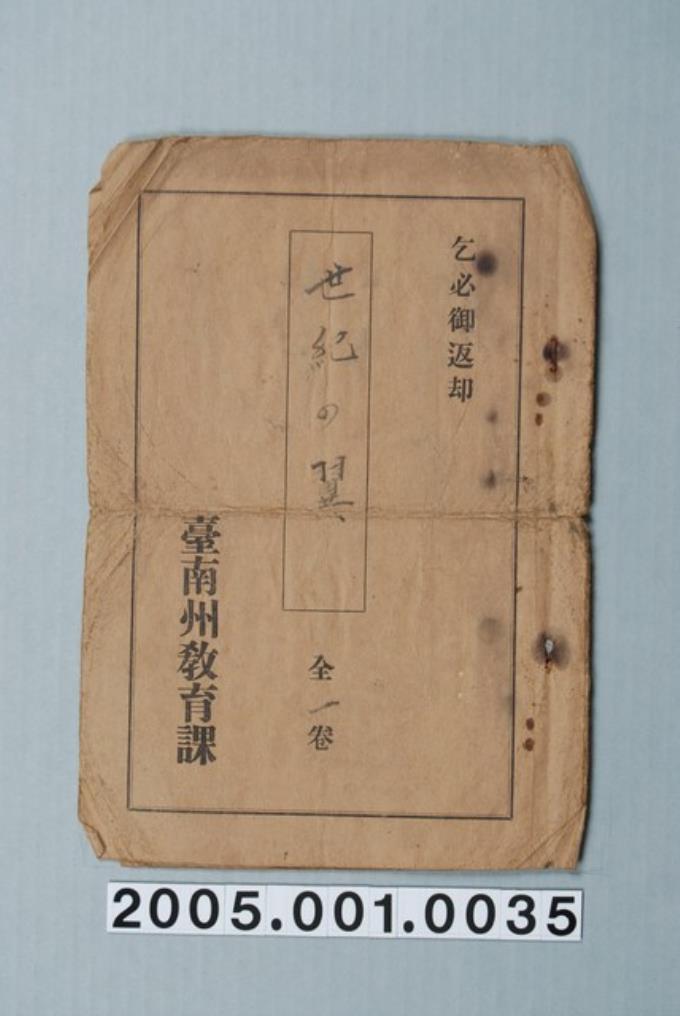 乞必御返却
世紀の翼
全一卷
臺南州教育課
2005.001.0035